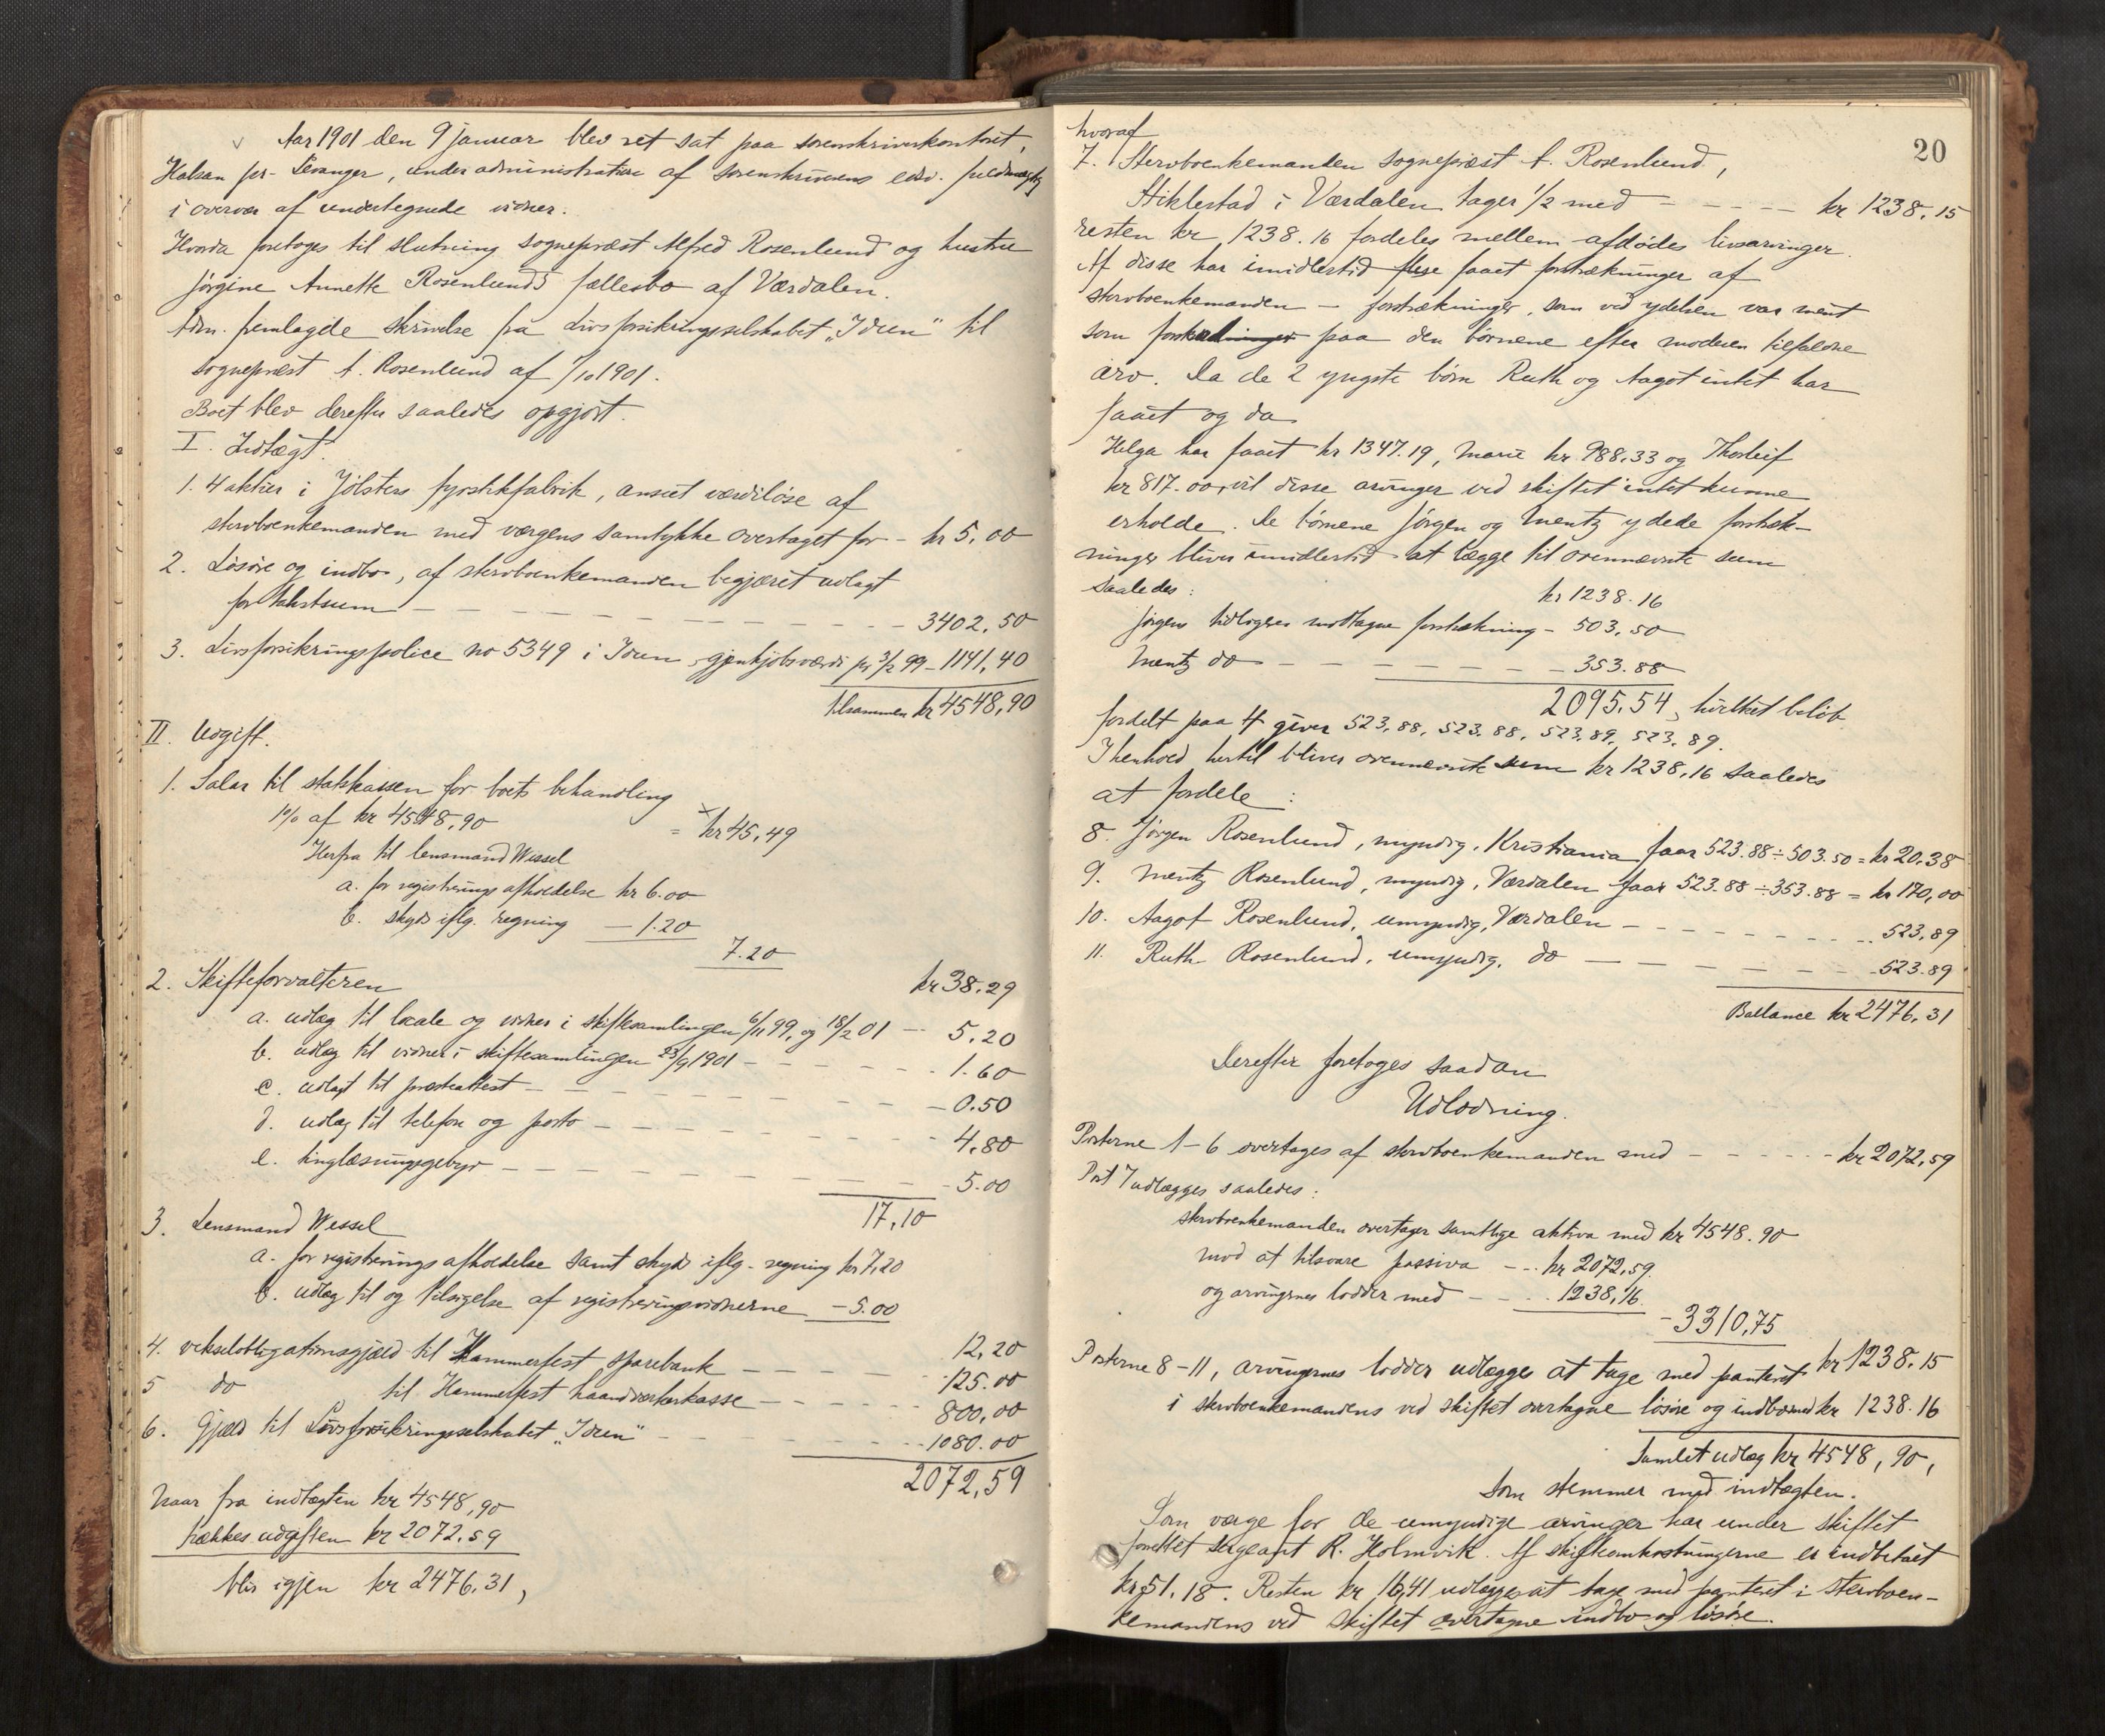 Aar 1901 den 9 januar blev ret sat paa sorenskriverkontoret,
Halsan pr. Levanger, under administration af sorenskriverens edsv. fuldmægtig
i overvær af undertegnede vidner.
Hvorda foretoges til slutning sogneprest Alfred Rosenlund og hustru
Jørgine Annette Rosenlunds fællesbo af Værdalen.
Adm. fremlagde skrivelse fra Livsforsikringsselskabet "Idun" til
sogneprest A. Rosenlund af 1/10 1901.
Boet blev derefter saaledes opgjort.
I. Indtægt:
1. 4 aktier i Jølsters fyrstikfabrik, anseet værdiløse af
sterboenkemanden med værgens samtykke overtaget for - kr 5,00
2. Løsøre og indbo, af sterboenkemanden begjæret udlagt
for takstsum - - - 3402,50
3. Livsforsikringspolice no 5349 i Idun, gjenkjøbsværdi pr 3/2 99 - 1141,40
tilsammen kr 4548,90
II. Udgift.
1. Salær til statskassen for boets behandling
1% af kr 4548,90 = kr 45,49
Herfra til lensmand Wessel
a. for registrerings afholdelse kr 6.00
b. skyds iflg. regning - 1.20
7.20
kr 38.29
2. Skifteforvalteren
a. udlæg til locale og vidner i skiftesamlingen 6/11 99, og 18/2 01 - 5,20
b. udlæg til vidner i skiftesamlingen 23/9 1901 - - - 1.60
c. udlagt til presteattest - - - 0.50
d. udlæg til telefon og porto - - - 4,80
e. tinglæsningsgebyr - - - 5.00
17,10
3. Lensmand Wessel
a. for registrerings afholdelse samt skyds iflg. regning kr 7,20
b. udlæg til og tilsigelse af registreringsvidnerne - 5.00
12,20
4. vekselobligationsgjæld til Hammerfest sparebank - - - 125.00
5 do til Hammerfest haandværkerkasse - - - 800,00
6. Gjæld til Livsforsikringsselskabet "Idun" - - - 1080.00
2072,59
Naar fra indtægten kr 4548,90
trækkes udgiften kr 2072.59
blir igjen kr 2476.31,
20
hvoraf
7. Sterboenkemanden sogneprest A. Rosenlund,
Stiklestad i Værdalen tager 1/2 med - - - kr 1238.15
resten kr 1238.16 fordeles mellem afdødes livsarvinger.
Af disse har imidlertid flere faaet forstrækninger af
sterboenkemanden - forstrækninger, som ved ydelsen var ment
som forskudninger paa den børnene efter moderen tilfaldne
arv. Da de 2 yngste børn Ruth og Aagot intet har
faaet og da
Helga har faaet kr 1347.19, Marie kr. 988.33 og Thorleif
kr 817.00, vil disse arvinger ved skiftet intet kunne
erholde. De børnene Jørgen og Mentz ydede forstræk-
ninger bliver imidlertid at lægge til ovennævnte sum
saaledes: kr 1238.16
Jørgens tidligere modtagne forstrækning - 503,50
Mentz do - - - 353.88
2095.54, hvilket beløb
fordelt paa 4 giver 523,88, 523.88, 523,89, 523,89.
I henhold hertil bliver ovennævnte sum kr 1238,16 saaledes
at fordele:
8. Jørgen Rosenlund, myndig, Kristiania faar 523.88 ÷ 503.50 = kr 20.38
9. Mentz Rosenlund, myndig, Værdalen faar 523.88 ÷ 353.88 = kr 170,00
10. Aagot Rosenlund, umyndig, Værdalen - - - 523,89
11. Ruth Rosenlund, umyndig, do - - - 523.89
Ballance kr 2476,31
Derefter foretoges saadan
Udlodning.
Posterne 1-6 overtages af sterboenkemanden med - - - kr 2072,59
Post 7 udlægges saaledes:
sterboenkemanden overtager samtlige aktiva med kr 4548.90
mod at tilsvare passiva - - kr 2072,59.
og arvingernes lodder med - - - 1238,16.
- 3310,75
kr 1238.15
Posterne 8-11, arvingernes lodder udlægges at tage med panteret
i sterboenkemandens ved skiftet overtagne løsøre og indbo med kr 1238.16
Samlet udlæg kr 4548,90,
som stemmer med indtægten.
Som værge for de umyndige arvinger har under skiftet
forrettet sergeant R. Holmvik. Af skifteomkostningerne er indbetalt
kr 51.18. Resten kr 16,41 udlægges at tage med panteret i sterboen-
kemandens ved skiftet overtagne indbo og løsøre.